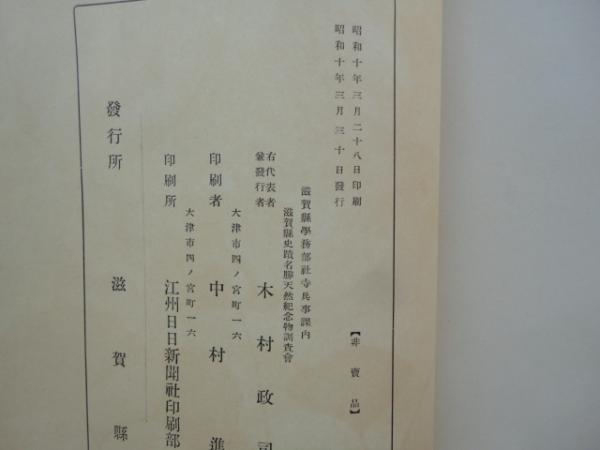 昭和十年三月二十八日印刷
昭和十年三月三十日發行
【非賣品】
滋賀縣學務部社寺兵事課内
滋賀縣史蹟名勝天然紀念物調査會
右代表者
兼發行者
木村政司
大津市四ノ宮町一六
印刷者
中村進
大津市四ノ宮町一六
印刷所
江州日日新聞社印刷部
發行所
滋賀縣